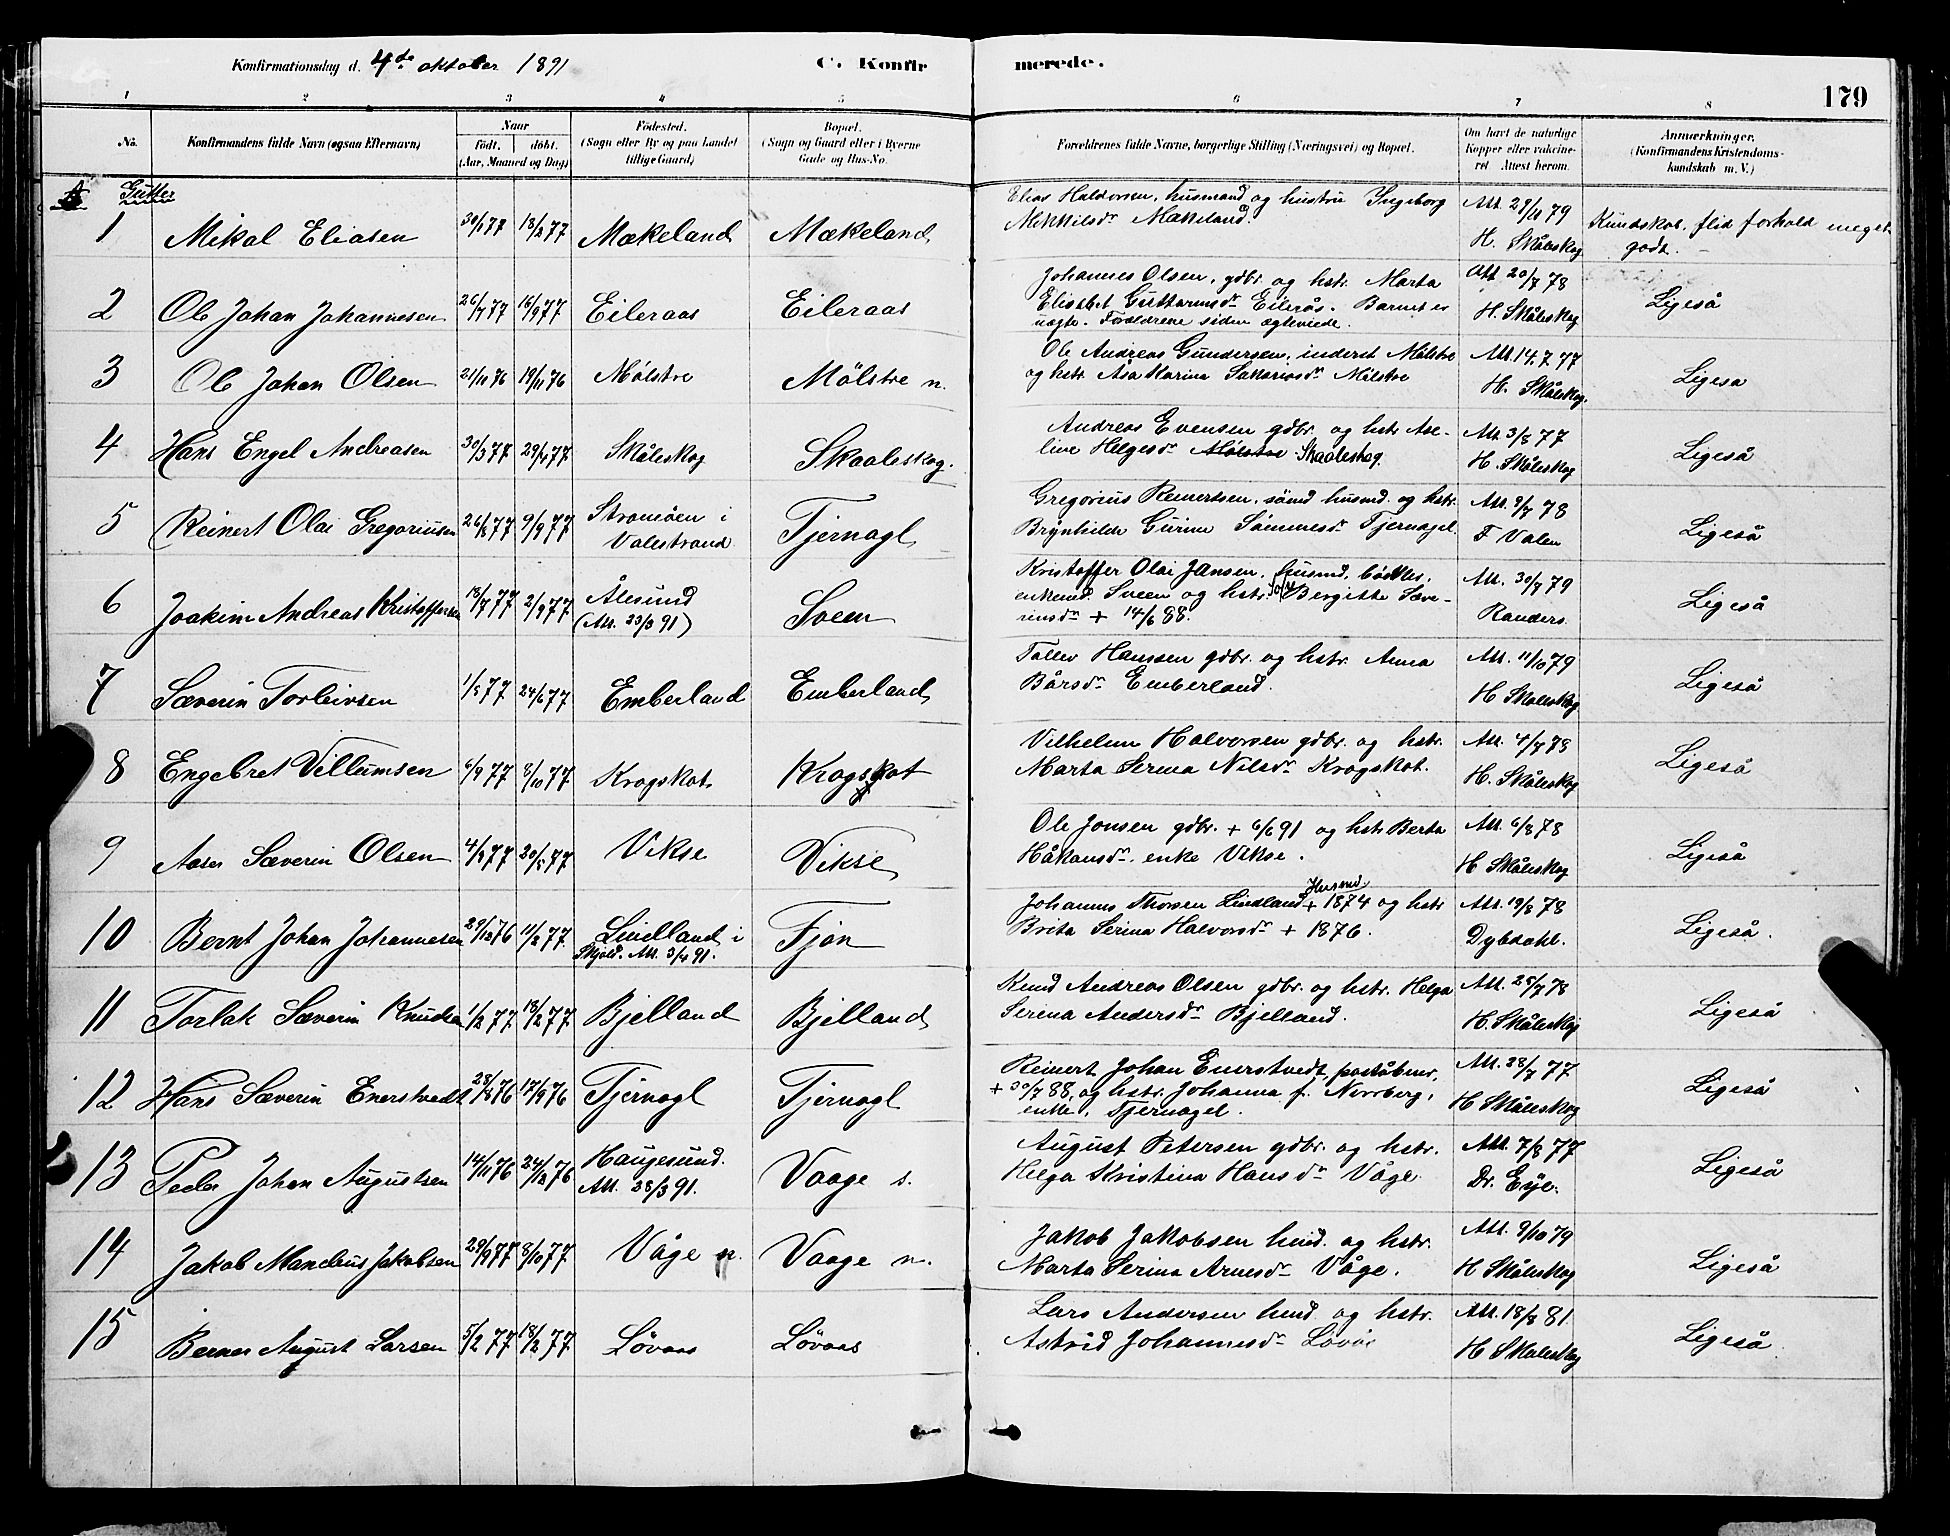 Konfirmationsdag d. 4de oktober 1891
C. Konfirmerede.
179
1 2 3 4 5 6 7 8
No.
Konfirmandens fulde Navn (ogsaa Efternavn)
Naar
født. døbt.
(Aar, Maaned og Dag)
Fødested.
(Sogn eller By og paa Landet
tillige Gaard)
Bopæl.
(Sogn og Gaard eller i Byerne
Gade og Hus-No.
Forældrenes fulde Navne, borgerlige Stilling (Næringsvei) og Bopæl.
Om havt de naturlige
Kopper eller vakcine-
ret Attest herom.
Anmærkninger.
(Konfirmandens Kristendoms-
kundskab m. V.)
Gutter
1 Mikal Eliasen 30/1 77 18/2 77 Mækeland Mækeland
Elias Haldorsen, husmand og hustru Ingeborg
Mikkilsdr Mækeland
Att. 28/10 79
H. Skåleskog
Kundskab, flid forhold meget
godt.
2 Ole Johan Johannesen 26/7 77 16/9 77 Eileraas Eileraas
Johannes Olsen, gdbr. og hstr. Marta
Elisabet Guttormsdr Eilerås. Barnet er
uægte. Forældrene siden ægteviede.
Att 20/7 78
H. Skåleskog
Ligeså
3 Ole Johan Olsen 21/10 76 19/11 76 Mølstre Mölstre n.
Ole Andreas Gundersen, inderst Mølstre
og hstr. Asa Karina Sakariasdr Mölstre
Att. 14.7.77
H. Skåleskog.
Ligesa
4 Hans Engel Andreasen 30/3 77 29/4 77 Skåleskog Skaaleskog.
Andreas Evensen gdbr. og hstr Ase-
line Helgesdr Mølstre Skaaleskog.
Att. 3/8 77
H. Skåleskog
Ligeså
5 Reinert Olai Gregoriusen 26/8 77 9/9 77 Stromöen i
Valestrand
Tjernagl
Gregorius Reinertsen, sömd husmd. og hstr.
Brynhilde Gurine Sämmesdr Tjernagel
Att. 9/7 78
F Valen
Ligeså
6 Joakim Andreas Kristoffersen 18/7 77 2/9 77 Ålesund
(Att. 23/3 91)
Sveen
Kristoffer Olai Jansen, husmd, bødker,
enkemd. Sveen og hstr. Bergitte Sæve-
rinsdr + 14/6 88.
Att. 30/7 79
Randers.
Ligeså
7 Sæverin Torleivsen 1/5 77 24/6 77 Emberland Emberland
Tollev Hanssen gdbr. og hstr. Anna
Bårsdr Emberland.
Att. 11/10 79
H Skåleskog
Ligeså
8 Engebret Villumsen 6/9 77 8/10 77 Krogskot Krogskot
Vilhelm Halvorsen gdbr. og hstr.
Marta Serina Nilsdr Krogskot.
Att. 4/7 78
H. Skåleskog
Ligeså
9 Aase Sæverin Olsen 4/4 77 20/5 77 Vikse Vikse
Ole Jonsen gdbr. + 6/6 91 og hstr Berta
Håkonsdr. enke Vikse.
Att. 6/8 78
H Skåleskog
Ligeså
10 Bernt Johan Johannesen 29/12 76 11/2 77 Lindland i
Skjold. Att. 3/4 91.
Fjön
Johannes Thorsen Lindland Husmd + 1874 og hstr
Brita Serina Halvorsdr + 1876.
Att. 19/8 78
Dybdahl.
Ligeså.
11 Torlak Sæverin Knudsen 1/2 77 18/2 77 Bjelland Bjelland
Knud Andreas Olsen gdbr. og hstr. Helga
Serina Andersdr Bjelland.
Att. 29/7 78
H. Skåleskog
Ligeså
12 Hans Sæverin Enerstvedt 28/8 76 17/9 76 Tjernagl Tjernagl
Reinert Johan Enerstvedt, poståbner,
+ 30/7 88, og hstr. Johanna f. Norrberg,
enke. Tjernagel.
Att. 28/7 77
H Skåleskog
Ligeså
13 Peder Johan Augustsen 14/11 76 24/12 76 Haugesund.
Att. 28/3 91.
Vaage s.
August Petersen gdbr. og hstr.
Helga Kristina Hansdr Våge.
Att. 7/8 77
Dr. Eye.
Ligeså
14 Jakob Mandeus Jakobsen 29/9 77 8/10 77 Våge n. Vaage n.
Jakob Jakobsen hmd. og hstr.
Marta Serina Arnesdr Våge.
Att. 9/10 79
H Skåleskog
Ligeså
15 Berner August Larsen 5/2 77 18/2 77 Løvaas Løvaas
Lars Andersen hmd. og hstr.
Astrid Johannesdr Lövås
Att. 18/8 81.
H Skåleskog
Ligeså